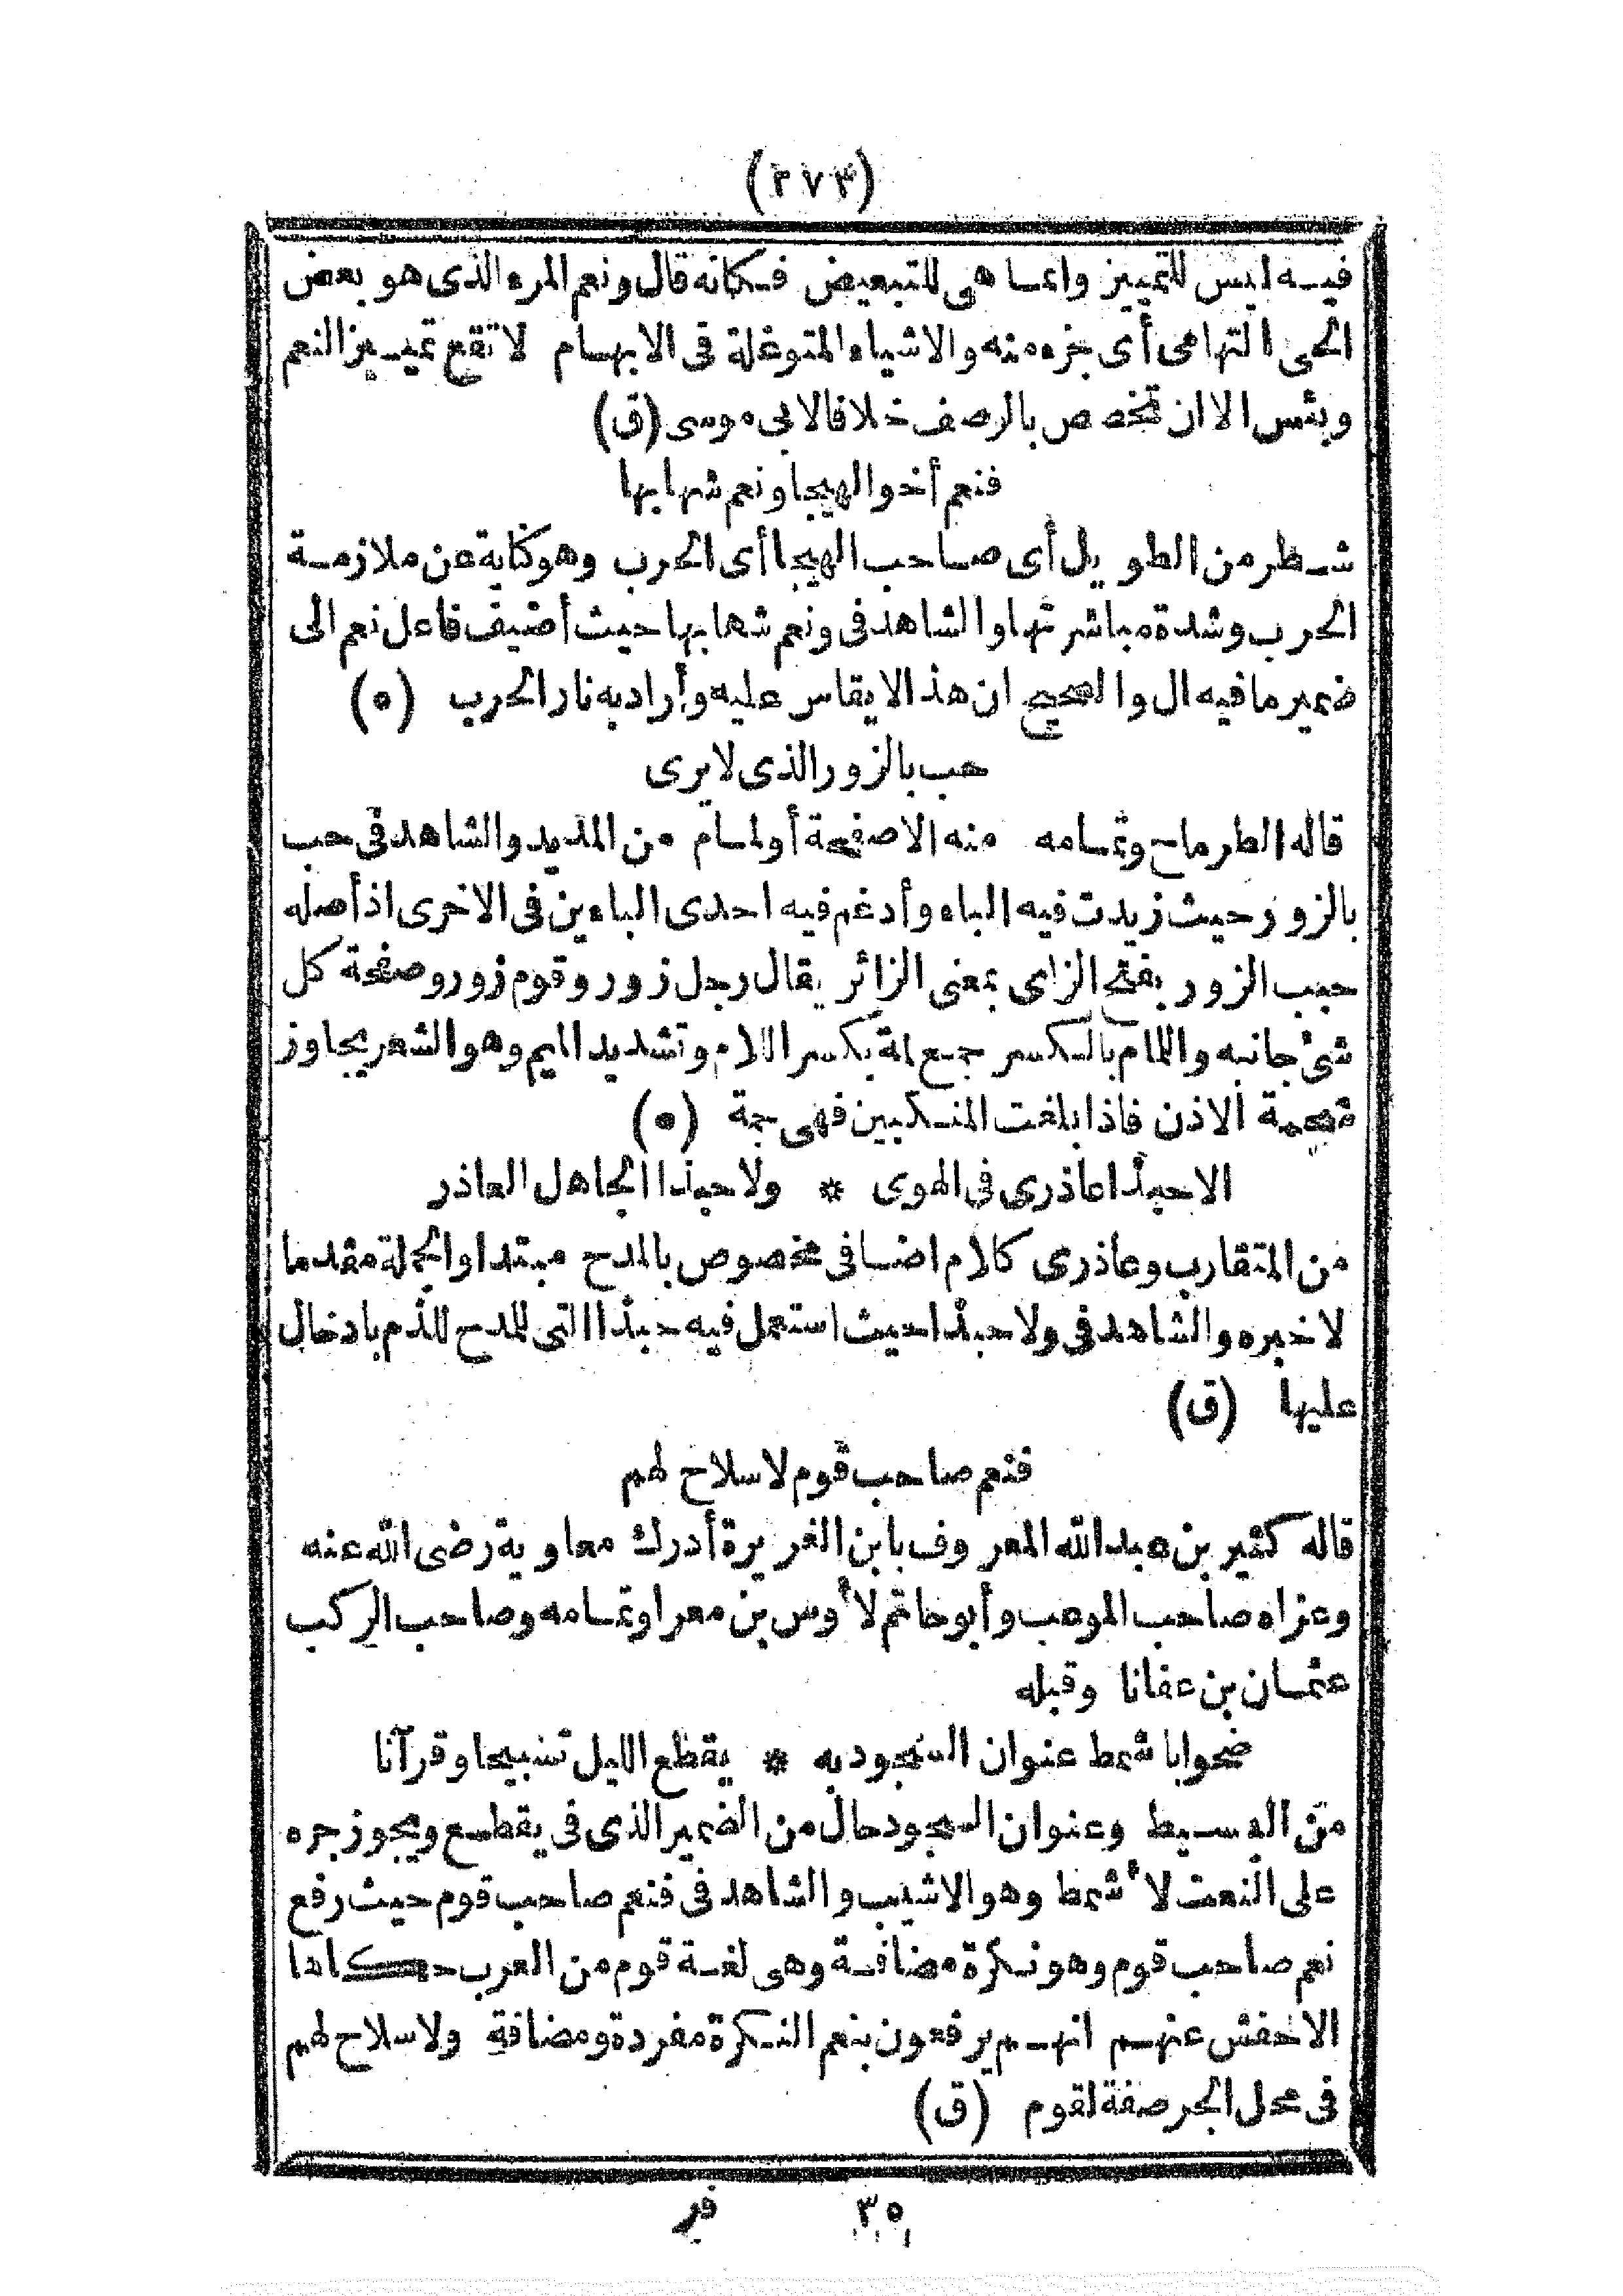 (٢٧٣)
فيه ليس للتمييز وانما هى للتبعيض فكانه قال ونعم المرء الذى هو بعض
الحى التهامى أى جزء منه والاشياء المتوغلة فى الابهام لا تقع تمييز النعم
وبئس الا ان تخصص بالوصف خلافا لابى موسى (ق)
فنعم أخو الهيجا ونعم شهابها
شطر من الطويل أى صاحب الهيجا أى الحرب وهو كناية عن ملازمة
الحرب وشدة مباشرتها والشاهد فى ونعم شهابها حيث أضيف فاعل نعم الى
ضمير ما فيه ال والصحيح ان هذا لا يقاس عليه وأراد به نار الحرب (ه)
حب بالزور الذى لا يرى
قاله الطرماح وتمامه منه الا صفحة أو لمام من المديد والشاهد فى حب
بالزور حيث زيدت فيه الباء وأدغم فيه احدى الباءين فى الاخرى اذ أصله
حبب الزور بفتح الزاى بمعنى الزائر يقال رجل زور وقوم زور وصفحة كل
شئ جانبه واللمام بالكسر جمع لمة بكسر اللام وتشديد الميم وهو الشعر يجاوز
شحمة الاذن فاذا بلغت المنكبين فهى جمة (ه)
الا حبذا عاذرى فى الهوى * ولا حبذا الجاهل العاذر
من المتقارب وعاذرى كلام اضافى مخصوص بالمدح مبتدا والجملة مقدما
لا خبره والشاهد فى ولا حبذا حيث استعمل فيه حبذا التى للمدح للذم بادخال
عليها (ق)
فنعم صاحب قوم لا سلاح لهم
قاله كثير بن عبد الله المعروف بابن الغريرة أدرك معاوية رضى الله عنه
وعزاه صاحب الموعب وأبو حاتم لأوس بن معرا وتمامه وصاحب الركب
عثمان بن عفانا وقبله
ضحوا باشمط عنوان السجود به * يقطع الليل تسبيحا وقرآنا
من البسيط وعنوان السجود حال من الضمير الذى فى يقطع ويجوز جره
على النعت لأشمط وهو الاشيب والشاهد فى فنعم صاحب قوم حيث رفع
نعم صاحب قوم وهو نكرة مضافة وهى لغة قوم من العرب حكاها
الاخفش عنهم انهم يرفعون بنعم النكرة مفردة ومضافة ولا سلاح لهم
فى محل الجر صفة لقوم (ق)
٣٥ فر